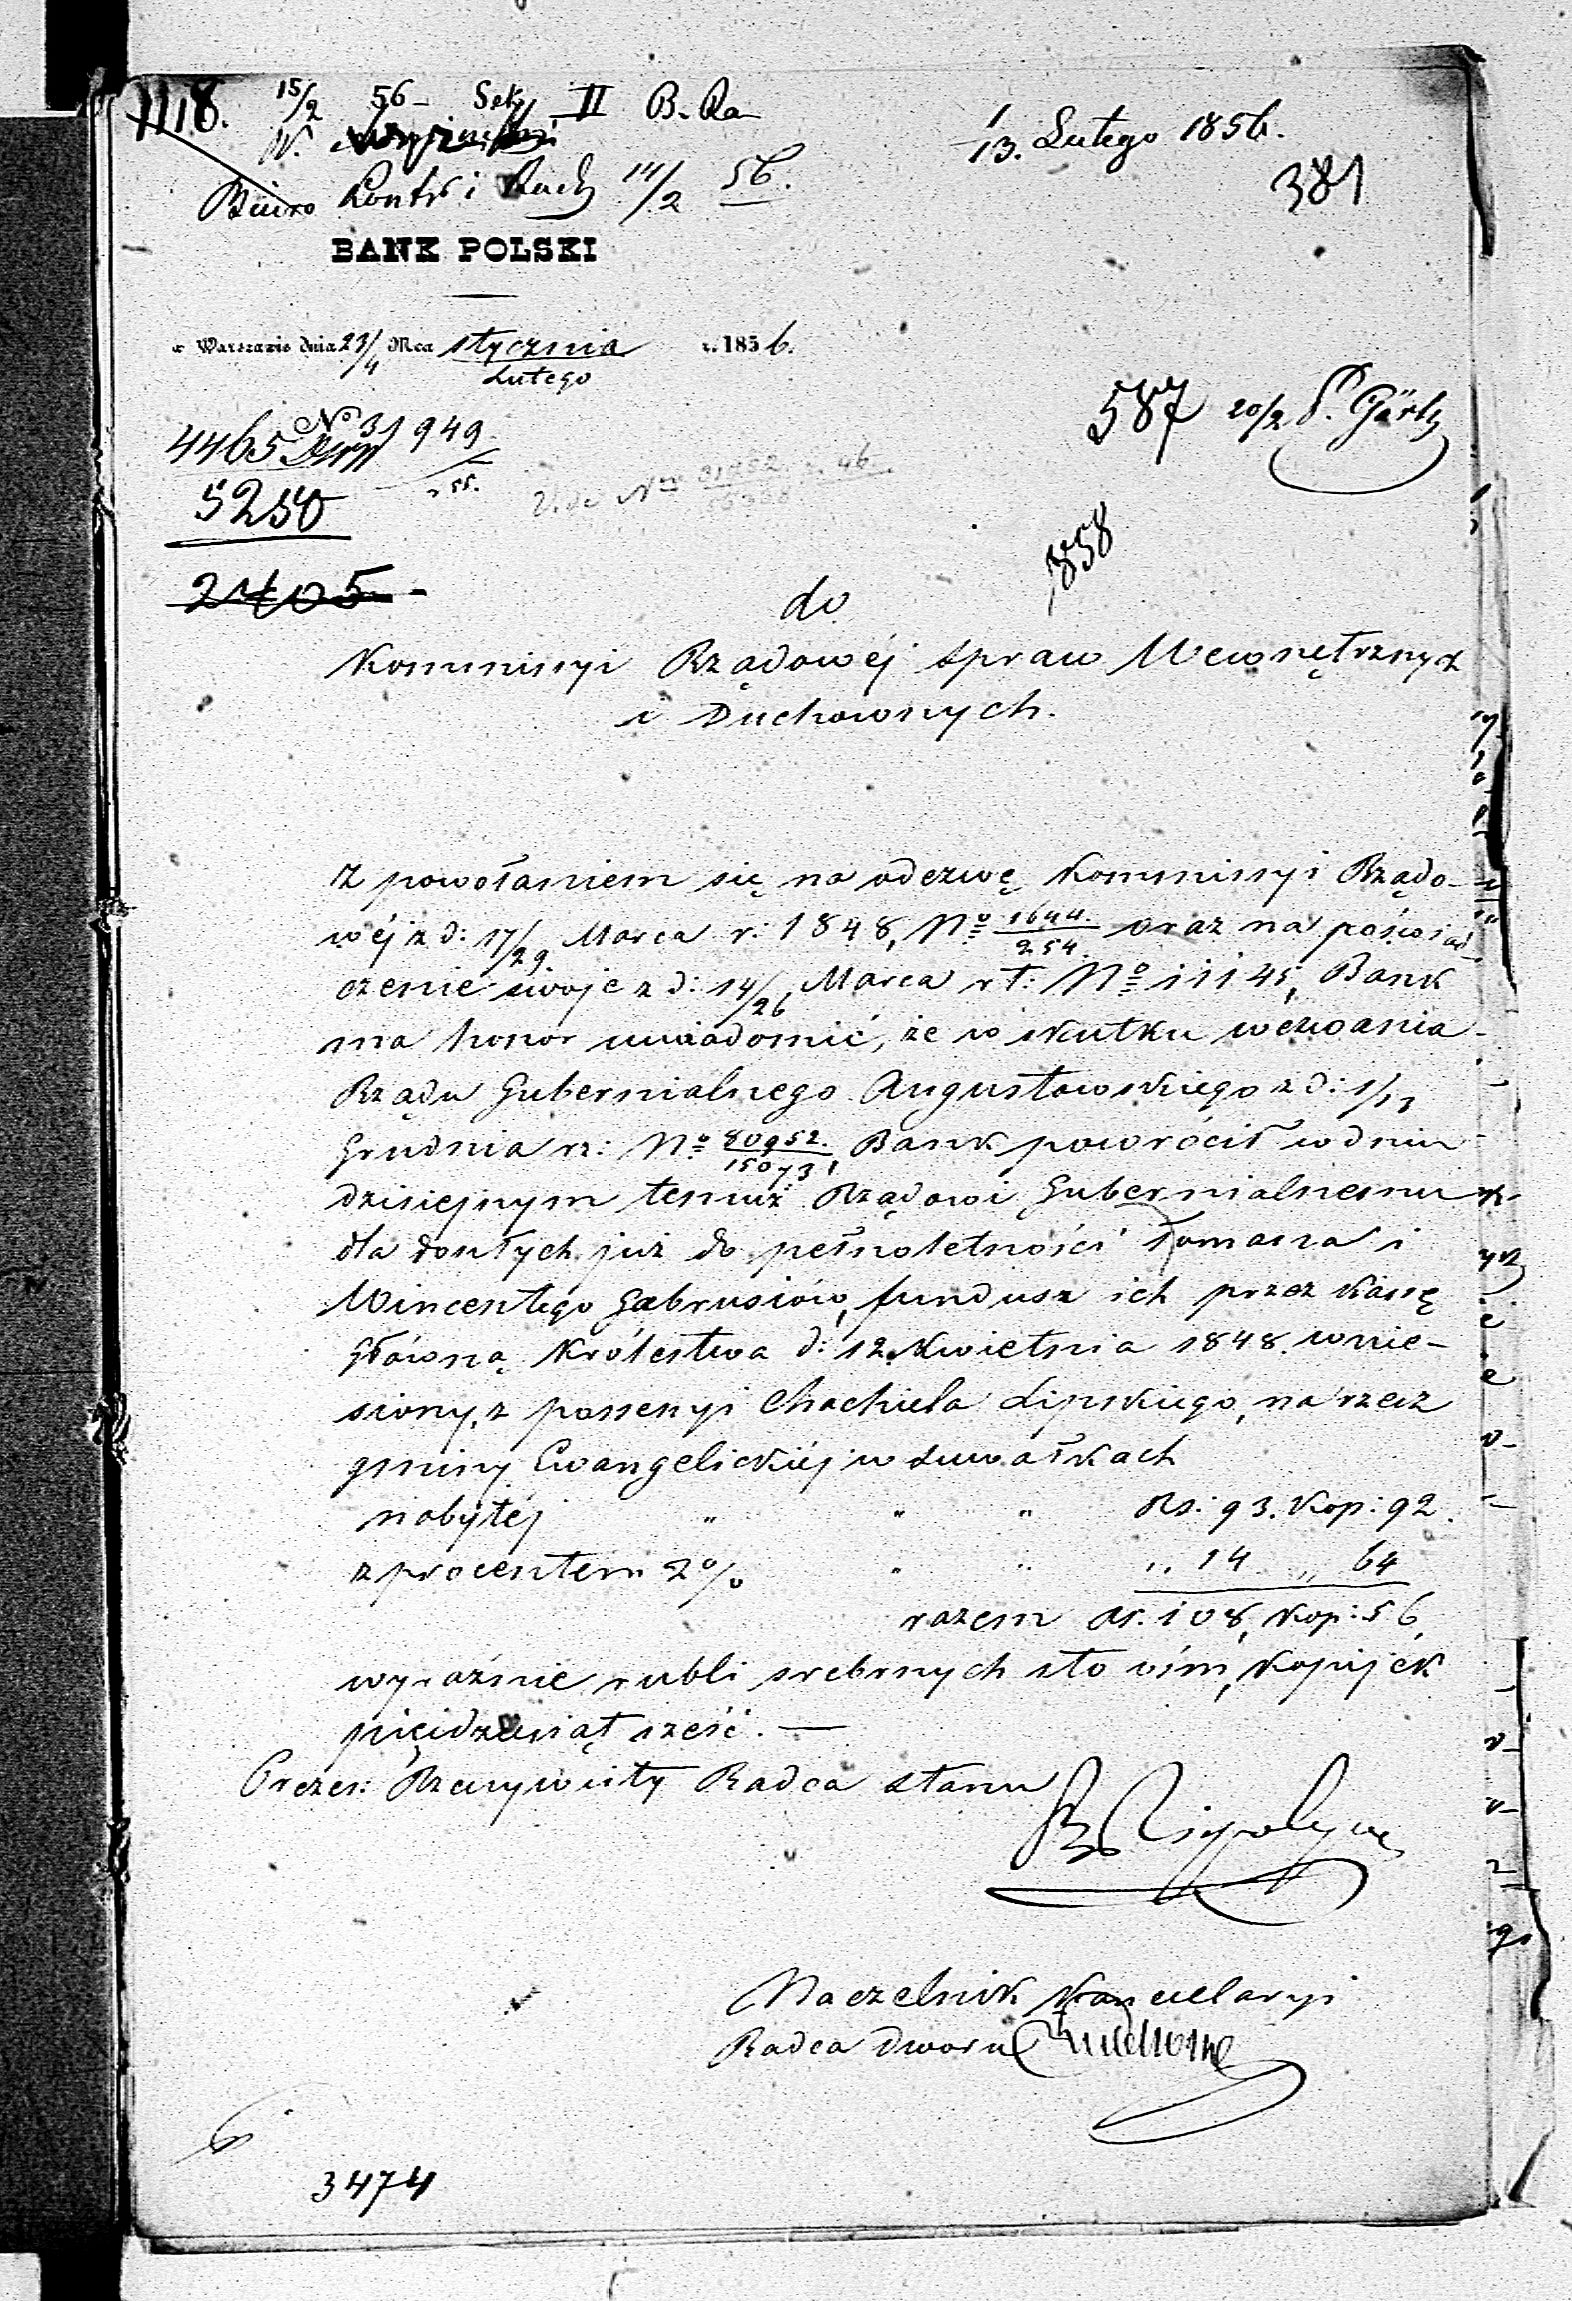 1118. 15/2 56 – Sek II B. Ra
W.
Biuro Kontr i Rach 14/2 56.
1/13. Lutego 1856.
381
BANK POLSKI
w Warszawie dnia 23/4 Mca Stycznia/Lutego r. 1856.
No 31949
4465
/55.
5250
2405 -
587 20/2 P. Görtz
858
do
Kommissyi Rządowéj Spraw Wewnętrznych
i Duchownych.
Z powołaniem się na odezwę Kommissyi Rządo-
wéj z d: 17/29 Marca r. 1848, No 1644./254. oraz na poświad-
czenie swoje z d: 14/26 Marca rt: No 11145, Bank
ma honor uwiadomić, że w skutku wezwania
Rządu Gubernialnego Augustowskiego z d: 1/13
Grudnia rz: No 80952./15073, Bank powrócił w dniu
dzisiejnym temuż Rządowi Gubernialnemu
dla doszłych już do pełnoletności Tomasza i
Wincentego Gabrusiów, fundusz ich przez Kassę
Główną Królestwa d: 12 Kwietnia 1848. wnie-
siony, z possesyi Chackiela Lipskiego, na rzecz
gminy Ewangelickiéj w Suwałkach
nabytéj " " " Rs: 93. Kop: 92.
z procentem 2% " " " 14 " 64
razem Rs. 108, Kop: 56,
wyraźnie rubli srebrnych sto óśm, Kopijek
pięćdziesiąt sześć. —
Prezes: Rzeczywisty Radca Stanu
Naczelnik Kancellaryi
Radca Dworu
3474